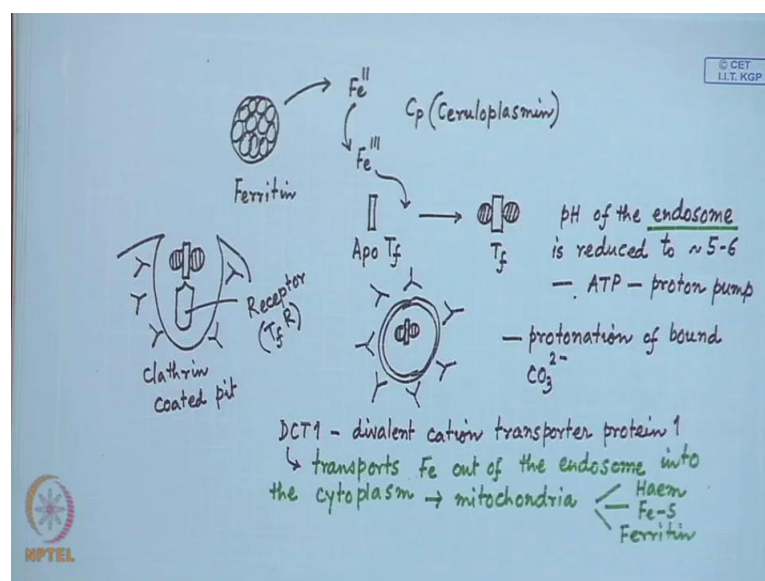 © CET
I.I.T. KGP
Fe^II
Cp (Ceruloplasmin)
Fe^III
Ferritin
Apo Tf
Tf
pH of the endosome
is reduced to ~ 5-6
— ATP — proton pump
— protonation of bound
CO3^2-
Receptor
(Tf R)
Clathrin
coated pit
DCT1 - divalent cation transporter protein 1
↳ transports Fe out of the endosome into
the cytoplasm → mitochondria
Haem
Fe-S
Ferritin
NPTEL